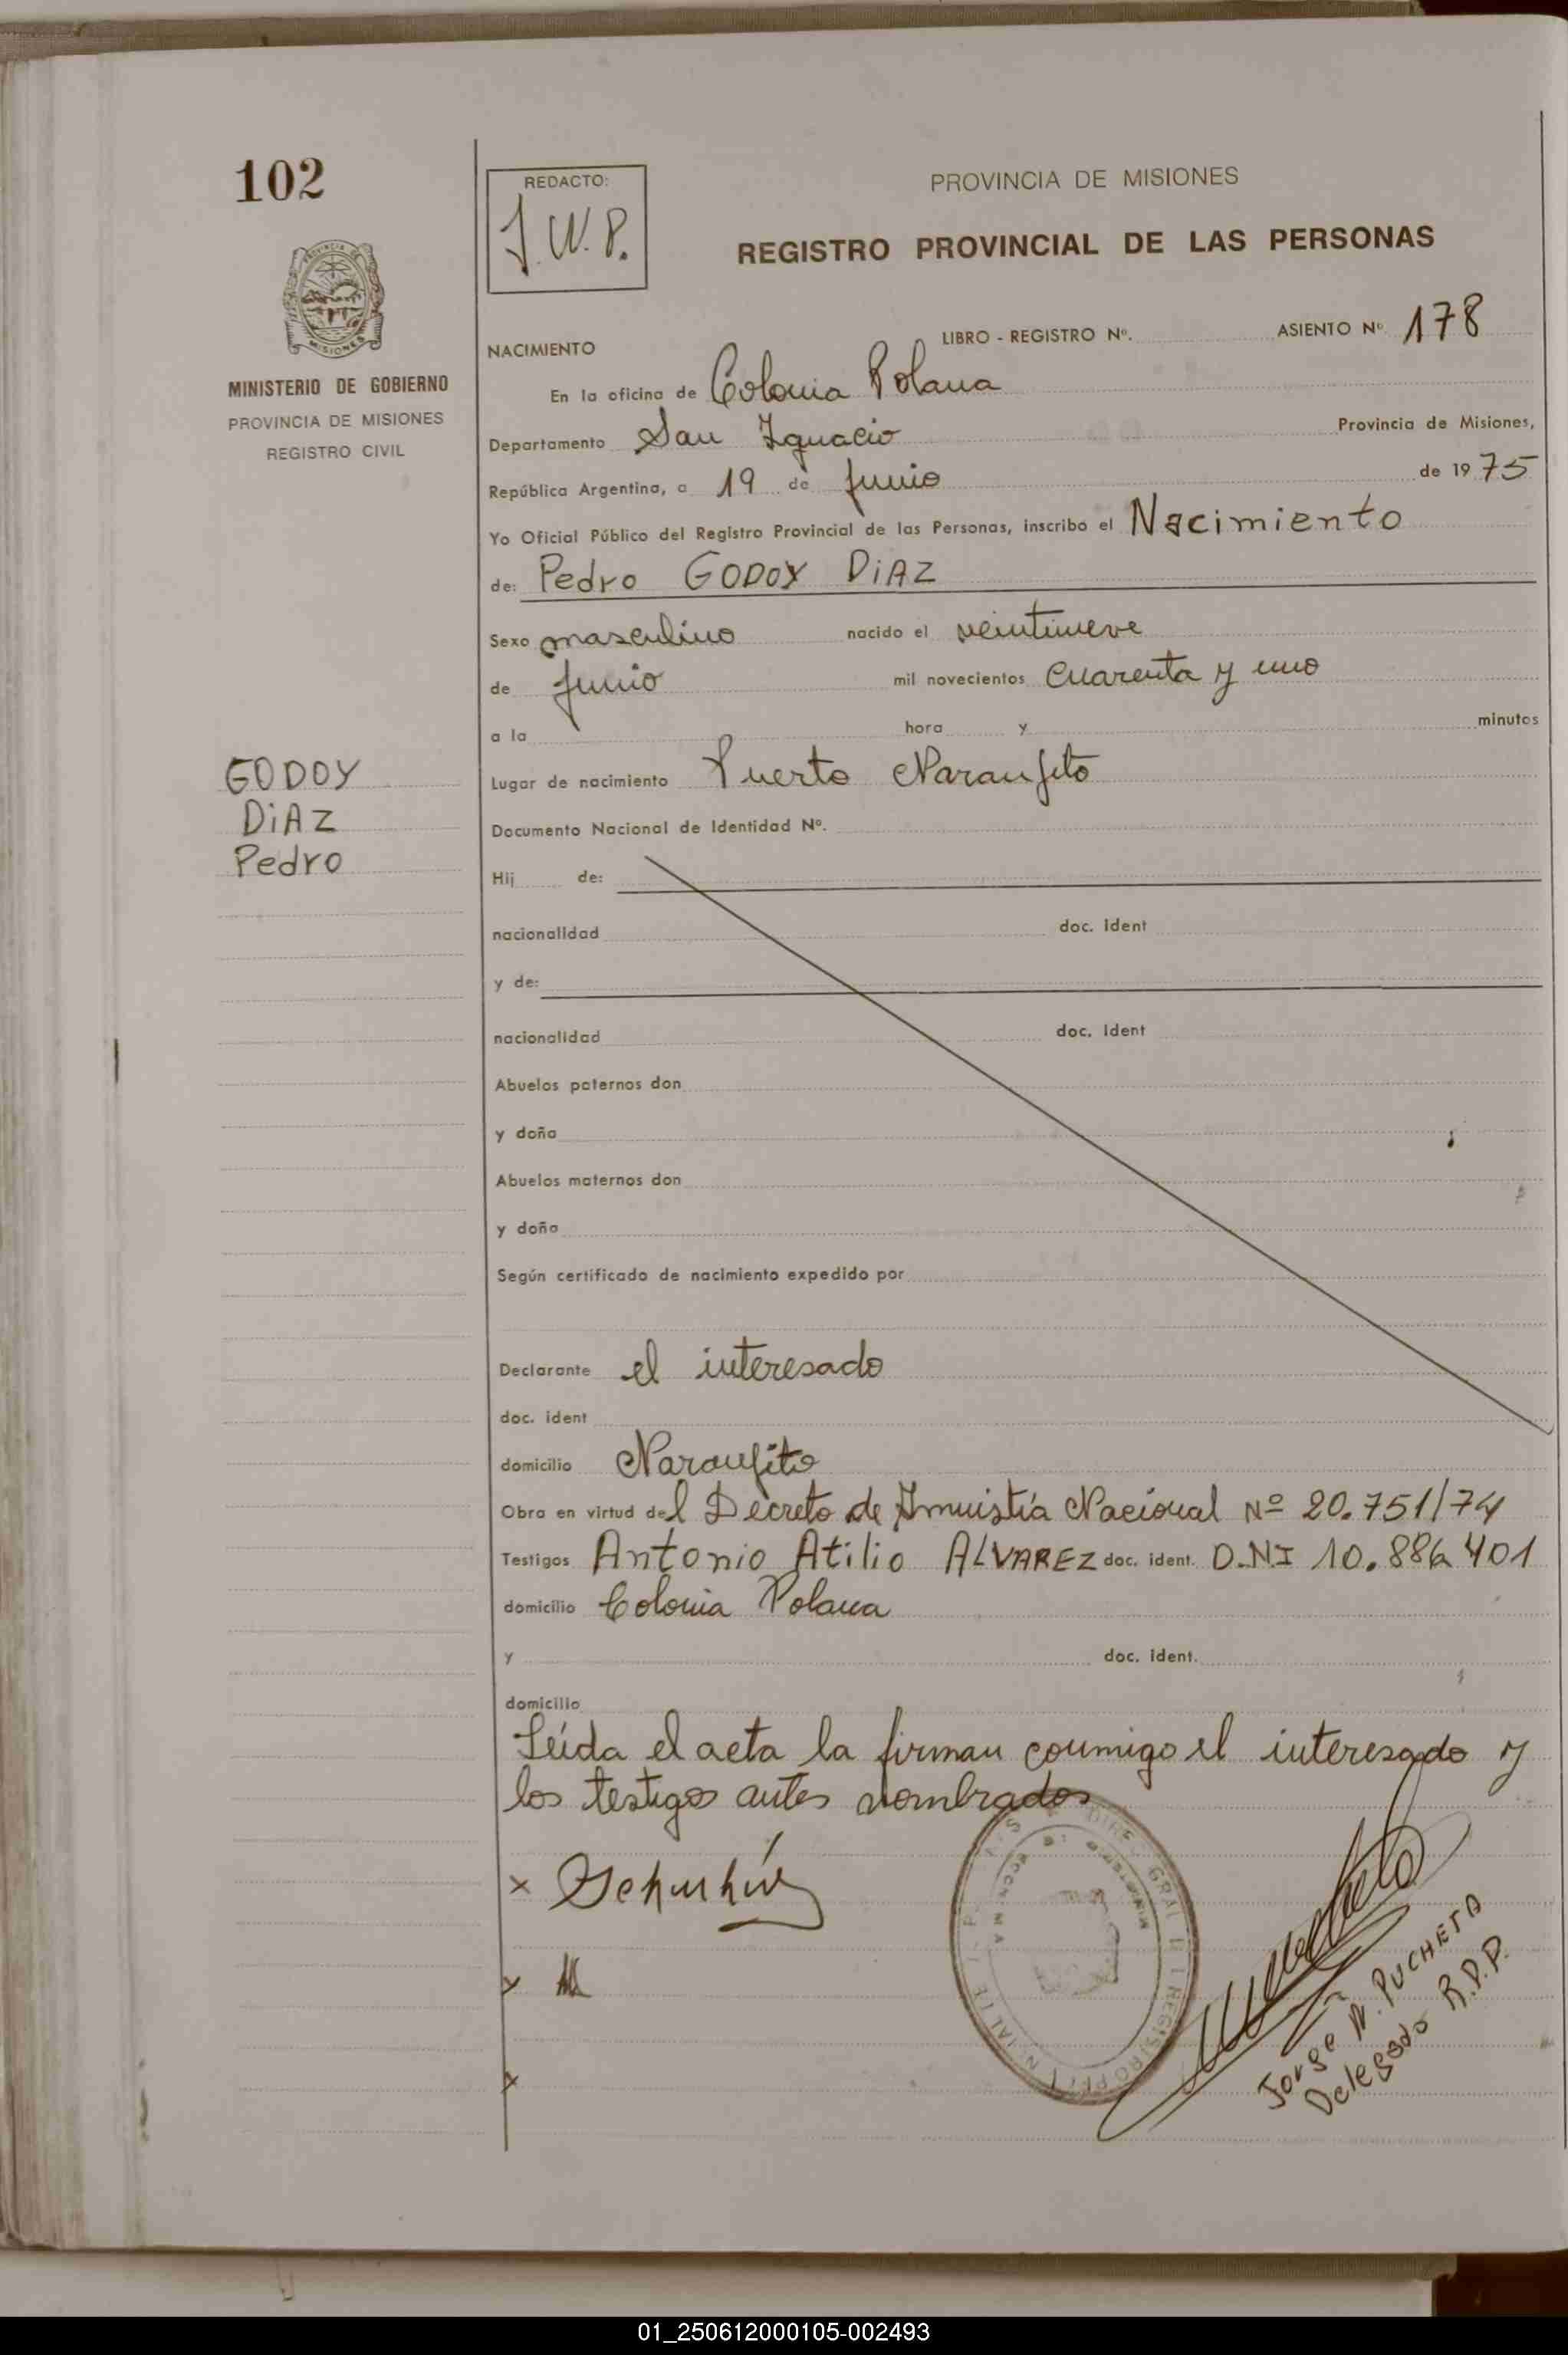 102
REDACTO:
J.W.P.
PROVINCIA DE MISIONES
REGISTRO PROVINCIAL DE LAS PERSONAS
MINISTERIO DE GOBIERNO
PROVINCIA DE MISIONES
REGISTRO CIVIL
NACIMIENTO LIBRO - REGISTRO Nº. ASIENTO Nº 178
En la oficina de Colonia Polana
Departamento San Ignacio Provincia de Misiones,
República Argentina, a 19 de junio de 1975
Yo Oficial Público del Registro Provincial de las Personas, inscribo el Nacimiento
de: Pedro GODOY DiAZ
Sexo masculino nacido el veintinueve
de junio mil novecientos cuarenta y uno
a la hora y minutos
Lugar de nacimiento Puerto Naranjito
GODOY
DiAZ
Pedro
Documento Nacional de Identidad Nº.
Hij de:
nacionalidad doc. ident
y de:
nacionalidad doc. ident
Abuelos paternos don
y doña
Abuelos maternos don
y doña
Según certificado de nacimiento expedido por
Declarante el interesado
doc. ident
domicilio Naranjito
Obra en virtud del Decreto de Amnistía Nacional Nº 20.751/74
Testigos Antonio Atilio ALVAREZ doc. ident. D.N.I 10.886 401
domicilio Colonia Polana
y doc. ident.
domicilio
Leída el acta la firman conmigo el interesado y
los testigos antes nombrados
Jorge W. PUCHETA
Delegado R.P.P.
01_250612000105-002493